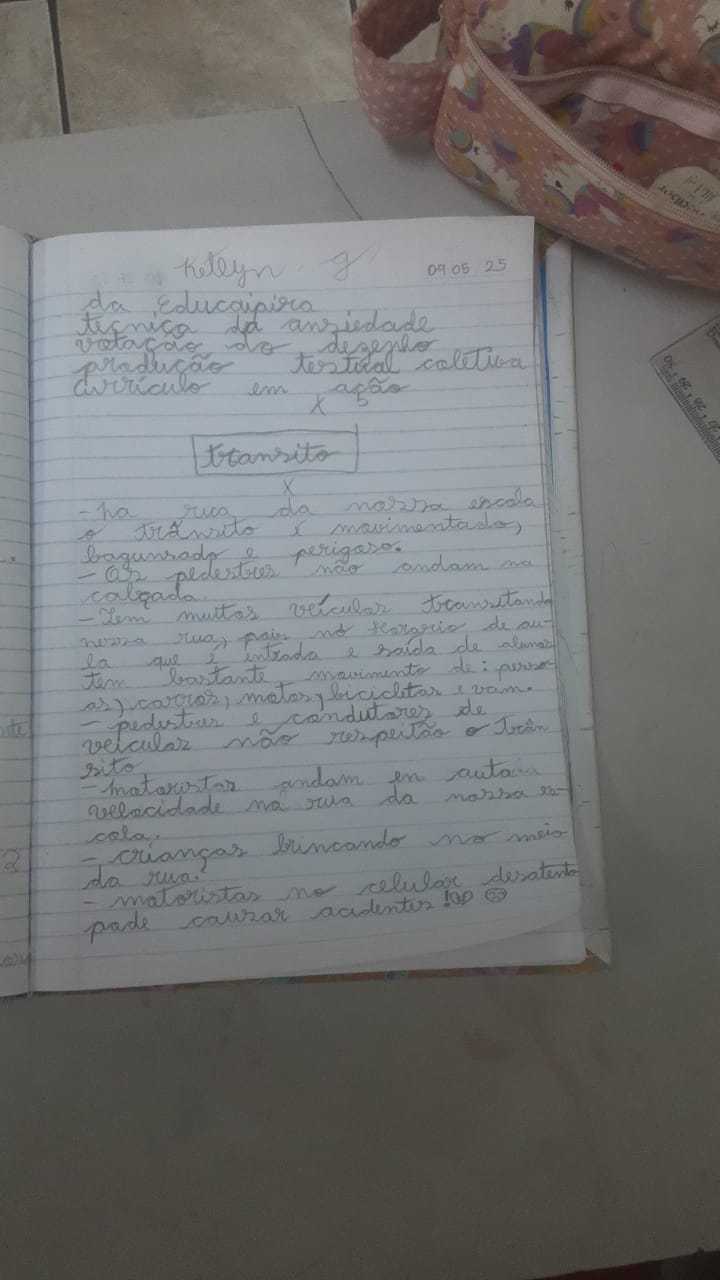 Ketlyn . J 09 05 25
da Educaipira
tecnica da ansiedade
votação do dezenho
produção textual coletiva
currículo em ação
X 5
transito
X
- na rua da nossa escola
o trânsito é movimentado,
bagunsado e perigoso.
- Os pedestres não andam na
calçada.
- Tem muitos veículos transitando
nessa rua, pois no Horario de au-
la que é entrada e saída de alunos
tem bastante movimento de: pesso-
as, carros, motos, bicicletas e vam.
- pedestres e condutores de
veículos não respeitão o Trân
sito
- motoristas andam en auta
velocidade na rua da nossa es-
cola.
- crianças brincando no meio
da rua.
- motoristas no celular desatento
pode causar acidentes!